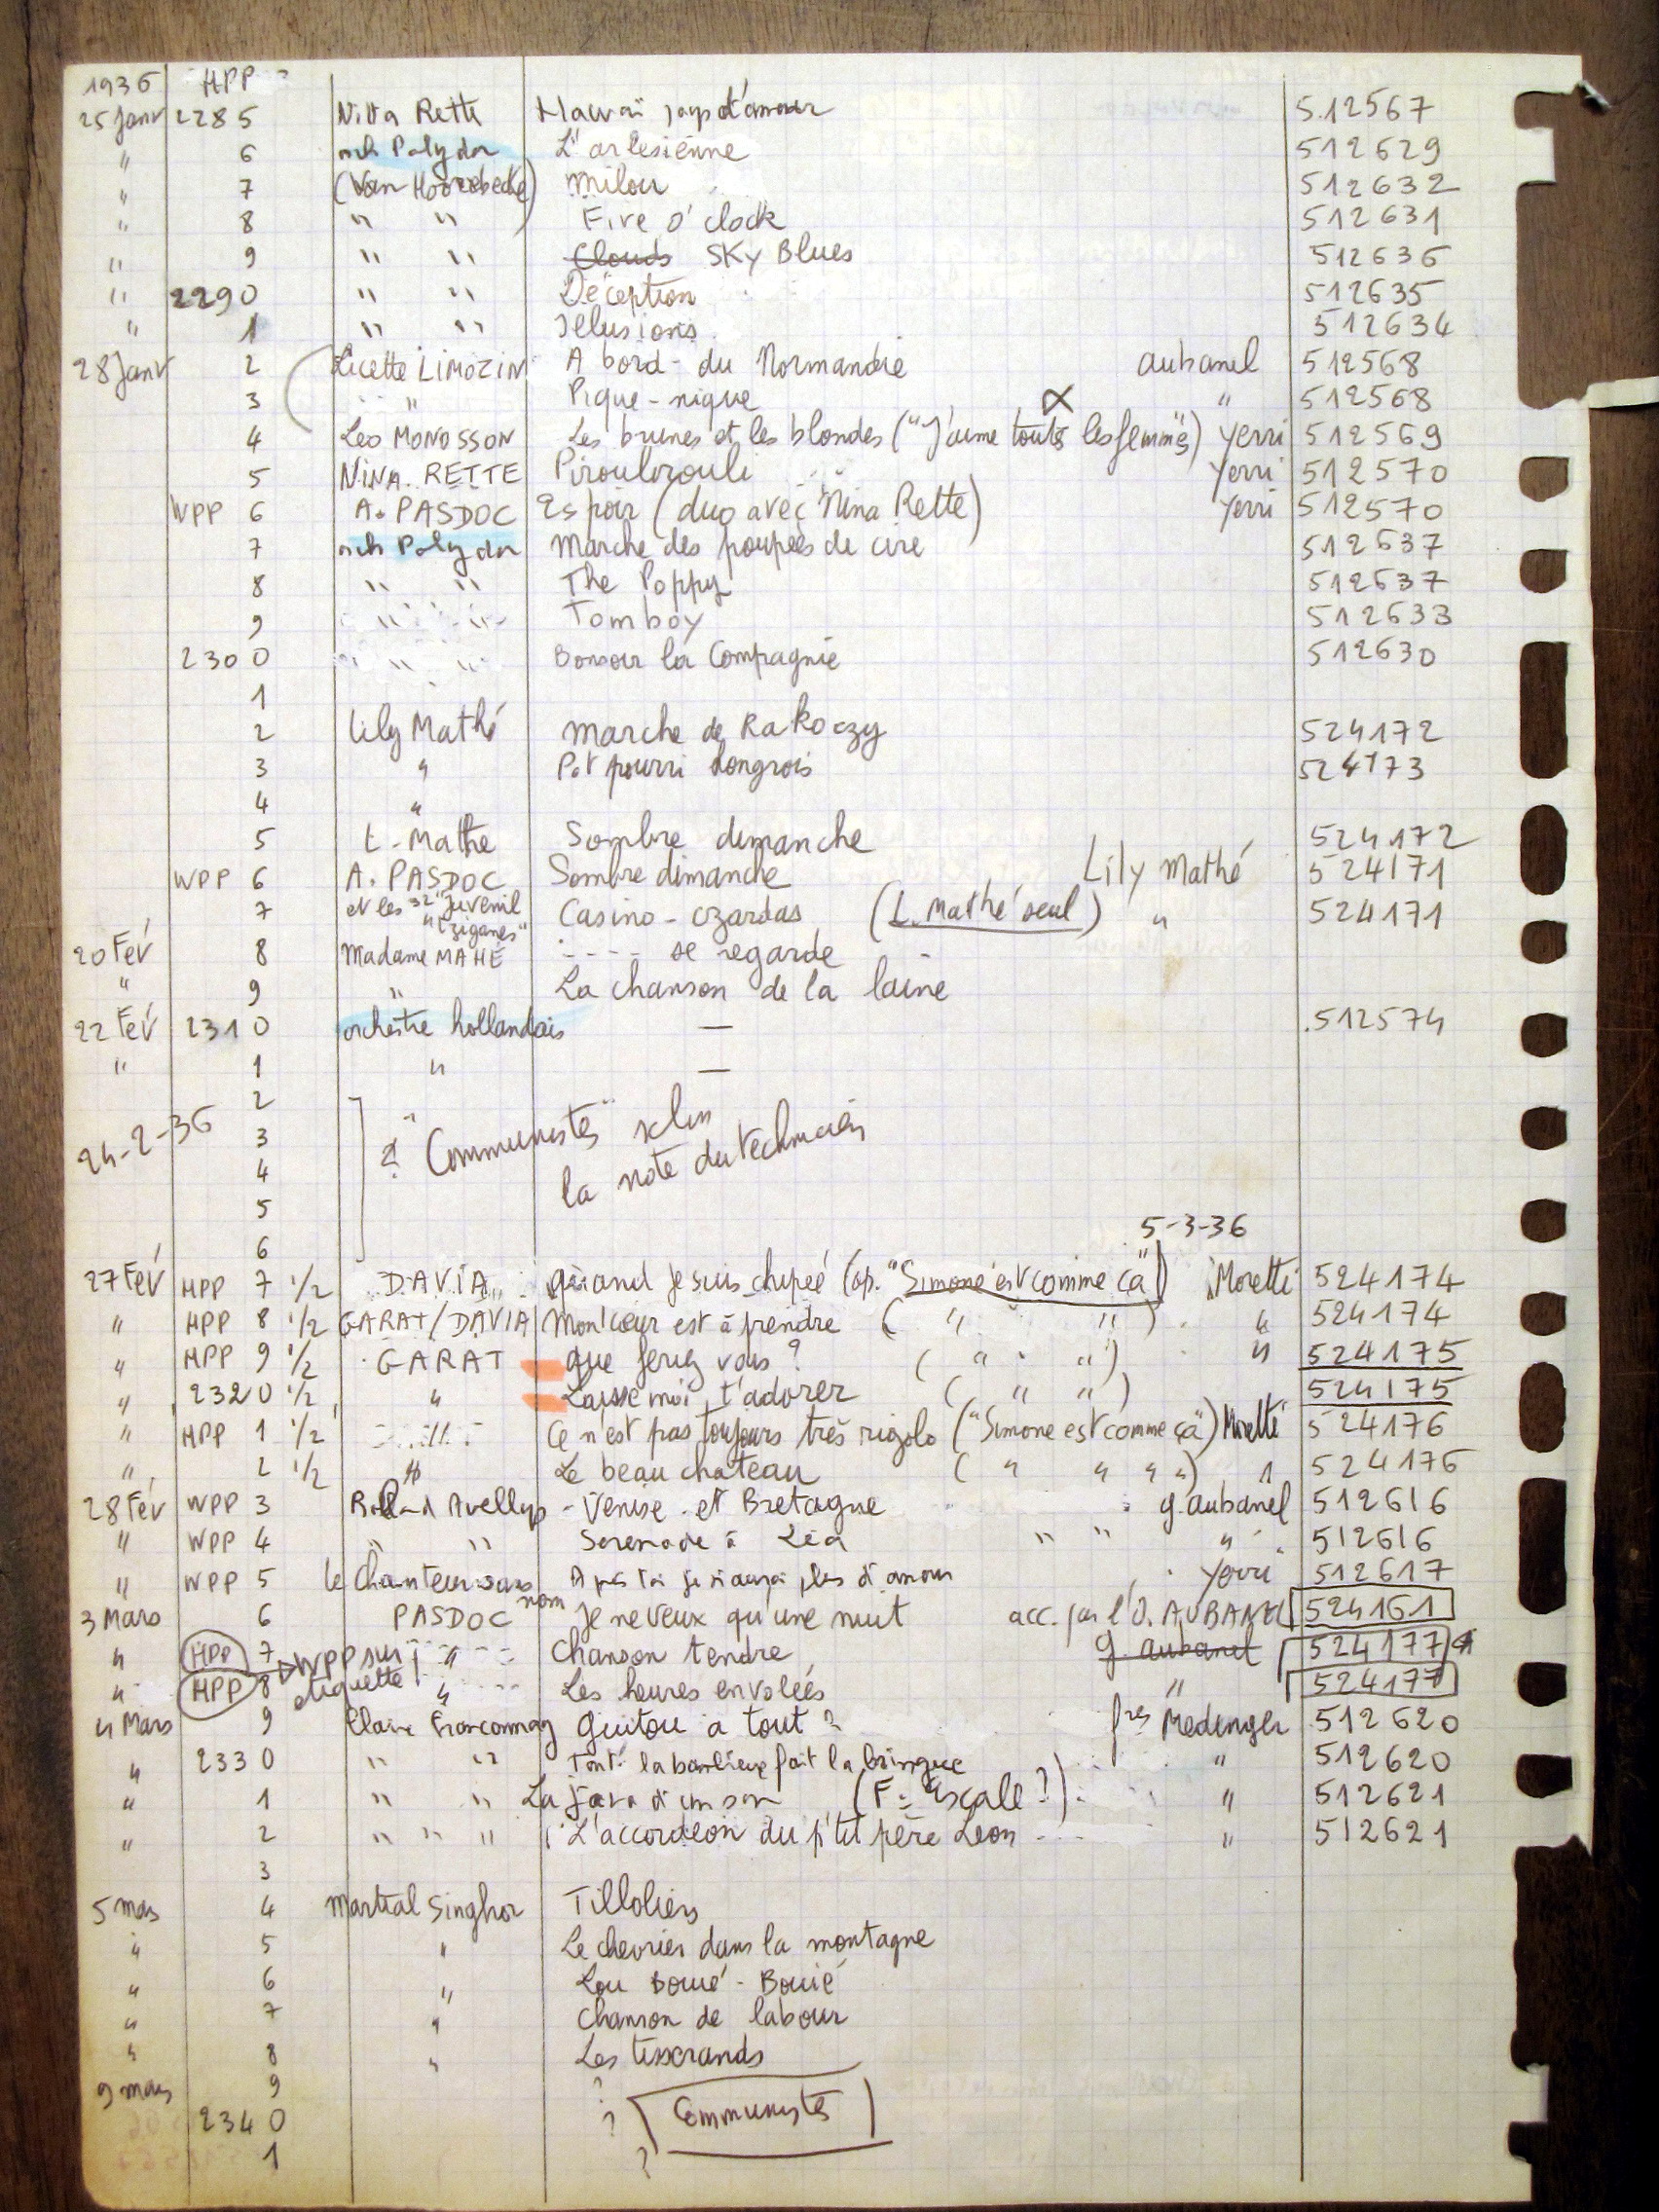 1936 HPP
25 Janv 2285 Nina Rette Mauvais jours d'amour 512567
" 6 orch Polydor L'arlesienne 512629
" 7 (Van Hoorebecke) Milou 512632
" 8 " " Five O'clock 512631
" 9 " " Clouds Sky Blues 512636
" 2290 " " Déception 512635
" 1 " " Illusions 512634
28 Janv 2 Licette LIMOZIN A bord - du Normandie aubanel 512568
3 " Pique-nique " 512568
4 Léo MONOSSON Les brunes et les blondes ("J'aime toutes les femmes") Yerri 512569
5 NINA. RETTE Pirouli Yerri 512570
WPP 6 A. PASDOC Espoir (duo avec Nina Rette) Yerri 512570
7 orch Polydor Marche des poupées de cire 512637
8 " " The Poppy 512637
9 " " Tomboy 512633
2300 " " Bonsoir la Compagnie 512630
1
2 Lily Mathé Marche de Rakoczy 524172
3 " Pot pourri hongrois 524173
4 "
5 L. Mathe Sombre dimanche 524172
WPP 6 A. PASDOC Sombre dimanche Lily Mathé 524171
7 et les "32 juvenil tziganes" Casino - czardas (L. Mathé seul) " 524171
20 Fév 8 Madame MAHE ---- se regarde
" 9 " La chanson de la laine
22 Fév 2310 orchestre hollandais — 512574
" 1 " —
2
24-2-36 3 ? "Communistes" selon
4 la note du technicien
5
5-3-36
6
27 Fév HPP 7 1/2 DAVIA Quand je suis chipée (op. "Simone est comme ça") Moretti 524174
" HPP 8 1/2 GARAT/DAVIA Mon cœur est à prendre ( " " ) " 524174
" HPP 9 1/2 GARAT que ferez vous ? ( " " ) " 524175
" 2320 1/2 " Laisse moi t'adorer ( " " ) 524175
" HPP 1 1/2 " Ce n'est pas toujours très rigolo ("Simone est comme ça") Moretti 524176
" 2 1/2 " Le beau chateau ( " " " ") " 524176
28 Fév WPP 3 Rolland Avellys - Venise et Bretagne g. aubanel 512616
" WPP 4 " " Serenade à Léa " " " 512616
" WPP 5 le Chanteur sans nom Après toi je n'aurai plus d'amour Yerri 512617
3 Mars 6 PASDOC Je ne veux qu'une nuit acc. par l'O. AUBANEL 524161
" HPP 7 WPP sur " Chanson tendre g. aubanel 524177
" HPP 8 etiquette " Les heures envolées " 524177
4 Mars 9 Claire Franconnay Guitou a tout ? frs Medinger 512620
" 2330 " " Tout' la banlieue fait la bringue " 512620
" 1 " " La java d'un sou (F. Escale ?) " 512621
" 2 " " " L'accordéon du p'tit père Léon " 512621
3
5 mars 4 Martial Singher Tilloliers
" 5 " Le chevrier dans la montagne
" 6 " Lou Boué - Bouié
" 7 " Chanson de labour
" 8 " Les tisserands
9 mars 9 ?
2340 ? Communistes
1 ?